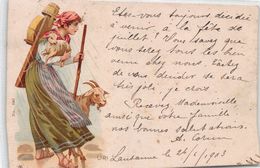 Êtes-vous toujours décidée
à venir à la fête de
juillet? Vous savez que
vous serez tous les bien
venus chez nous. Tachez
de vous décider se sera
très joli je crois
Recevez Mademoiselle
ainsi que votre famille
nos bonnes salutations.
A.
URI
Lausanne le 26/1/1903